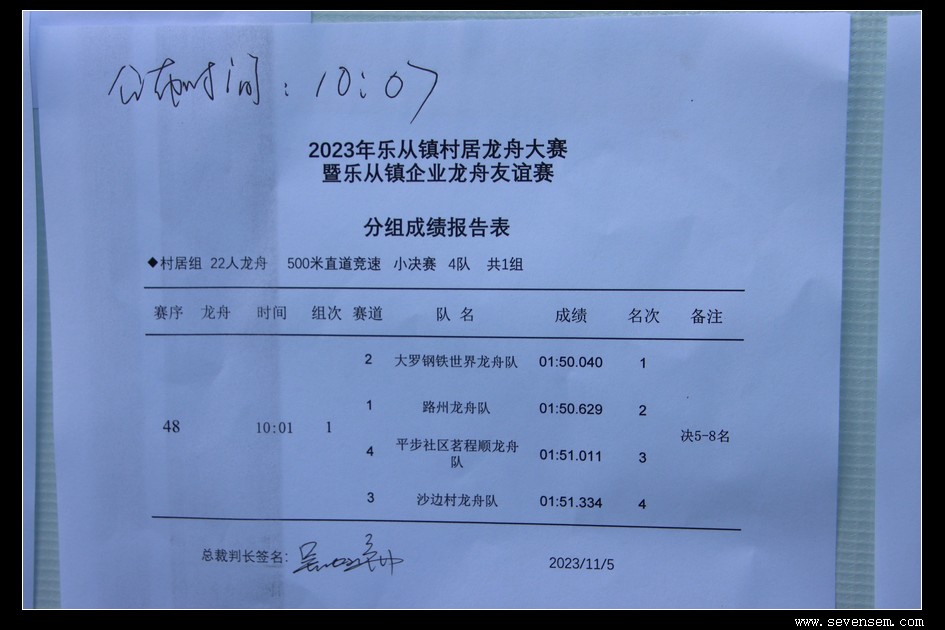 公布时间：10:07
2023年乐从镇村居龙舟大赛
暨乐从镇企业龙舟友谊赛
分组成绩报告表
◆村居组 22人龙舟 500米直道竞速 小决赛 4队 共1组
赛序 龙舟 时间 组次 赛道 队 名 成绩 名次 备注
2 大罗钢铁世界龙舟队 01:50.040 1
1 路州龙舟队 01:50.629 2
48 10:01 1 决5-8名
4 平步社区茗程顺龙舟队 01:51.011 3
3 沙边村龙舟队 01:51.334 4
总裁判长签名: 2023/11/5
www.sevensem.com